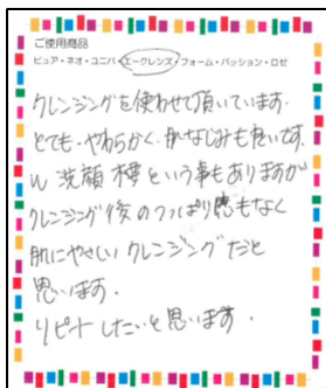 ご使用商品
ピュア・ネオ・ユニバ・エークレンズ・フォーム・パッション・ロゼ
クレンジングを使わせて頂いています.
とても、やわらかく、肌なじみも良いです.
W 洗顔 不要という事もありますが
クレンジング後のつっぱり感もなく
肌にやさしいクレンジングだと
思います.
リピートしたいと思います.